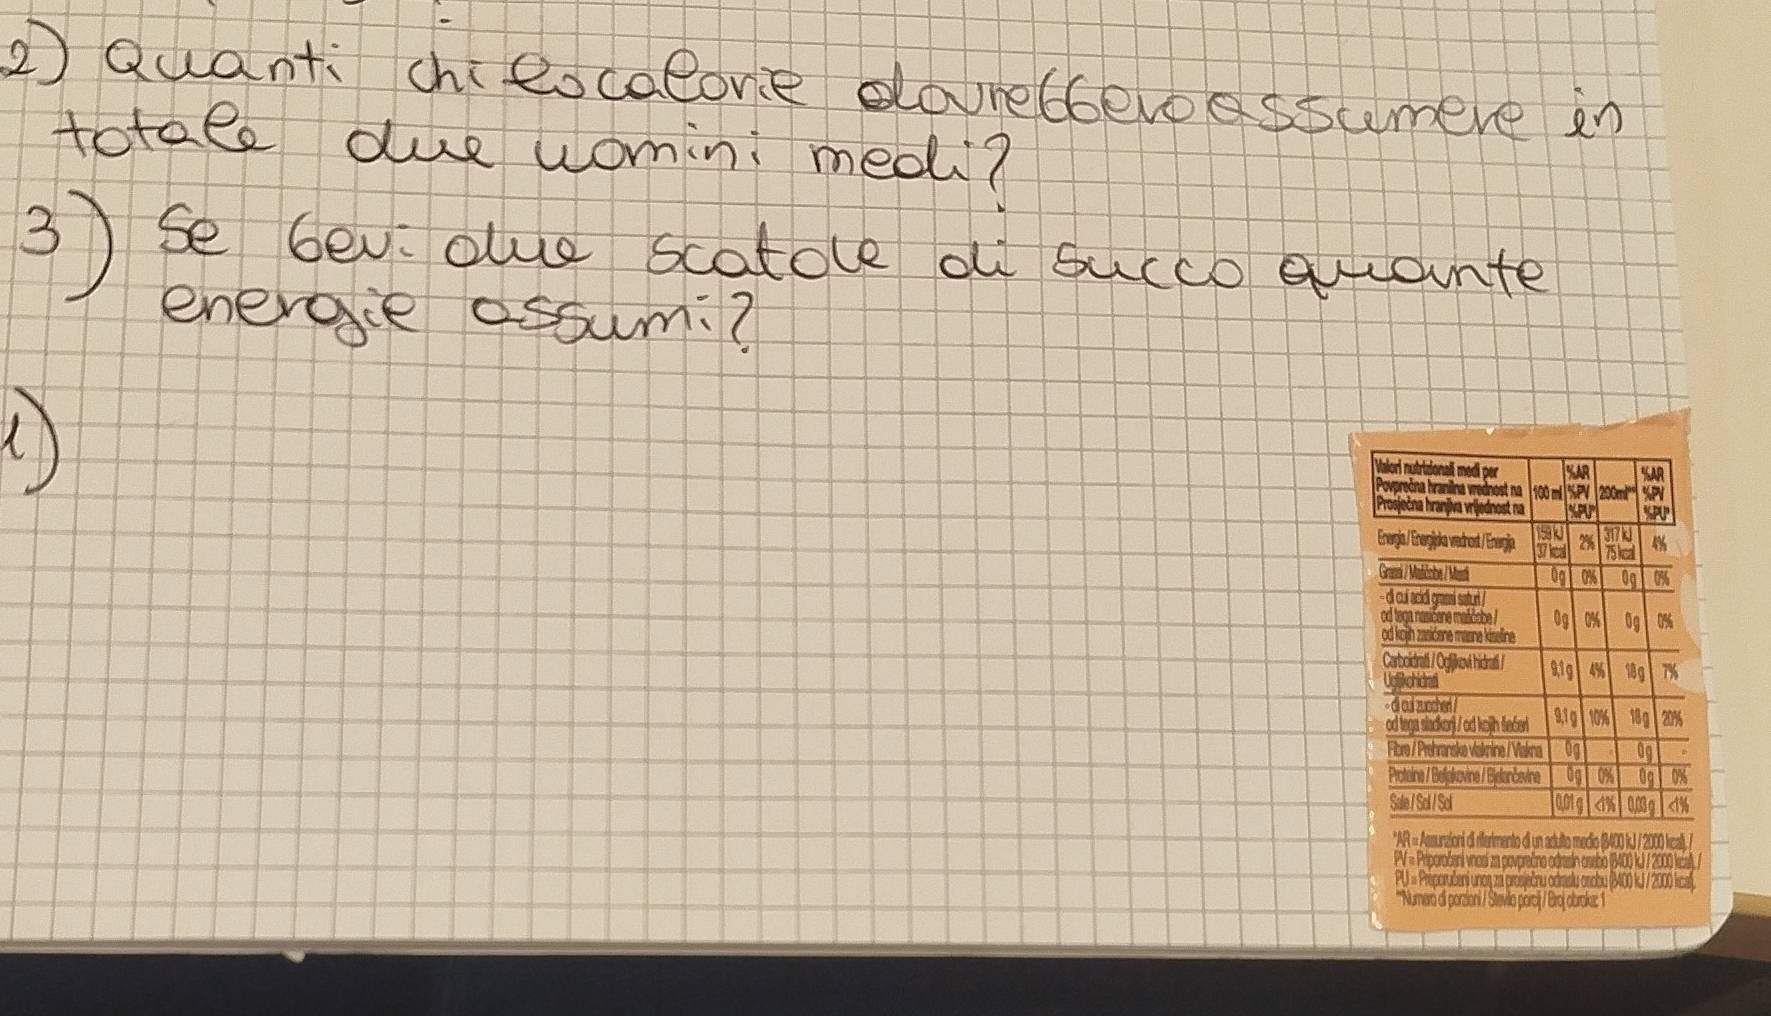 2) Quanti chilocalorie dovrebbero assumere in
totale due uomini medi?
3) Se bevi due scatole di succo quante
energie assumi?
1)
Valori nutrizionali medi per
Povprečna hranilna vrednost na
Prosječna hranjiva vrijednost na
100 ml
%AR
%PV
%PU*
200ml**
%AR
%PV
%PU*
Energia / Energijska vrednost / Energija
159 kJ
37 kcal
2%
317 kJ
75 kcal
4%
Grassi / Maščobe / Masti 0g 0% 0g 0%
- di cui acidi grassi saturi /
od tega nasičene maščobe /
od kojih zasićene masne kiseline
0g 0% 0g 0%
Carboidrati / Ogljikovi hidrati /
Ugljikohidrati
9,1g 4% 18g 7%
- di cui zuccheri /
od tega sladkorji / od kojih šećeri
9,1g 10% 18g 20%
Fibre / Prehranske vlaknine / Vlakna 0g - 0g -
Proteine / Beljakovine / Bjelančevine 0g 0% 0g 0%
Sale / Sol / Sol 0,01g <1% 0,03g <1%
*AR = Assunzioni di riferimento di un adulto medio (8400 kJ / 2000 kcal). /
PV = Priporočeni vnosi za povprečno odraslo osebo (8400 kJ / 2000 kcal). /
PU = Preporučeni unos za prosječnu odraslu osobu (8400 kJ / 2000 kcal).
**Numero di porzioni / Število porcij / Broj obroka: 1